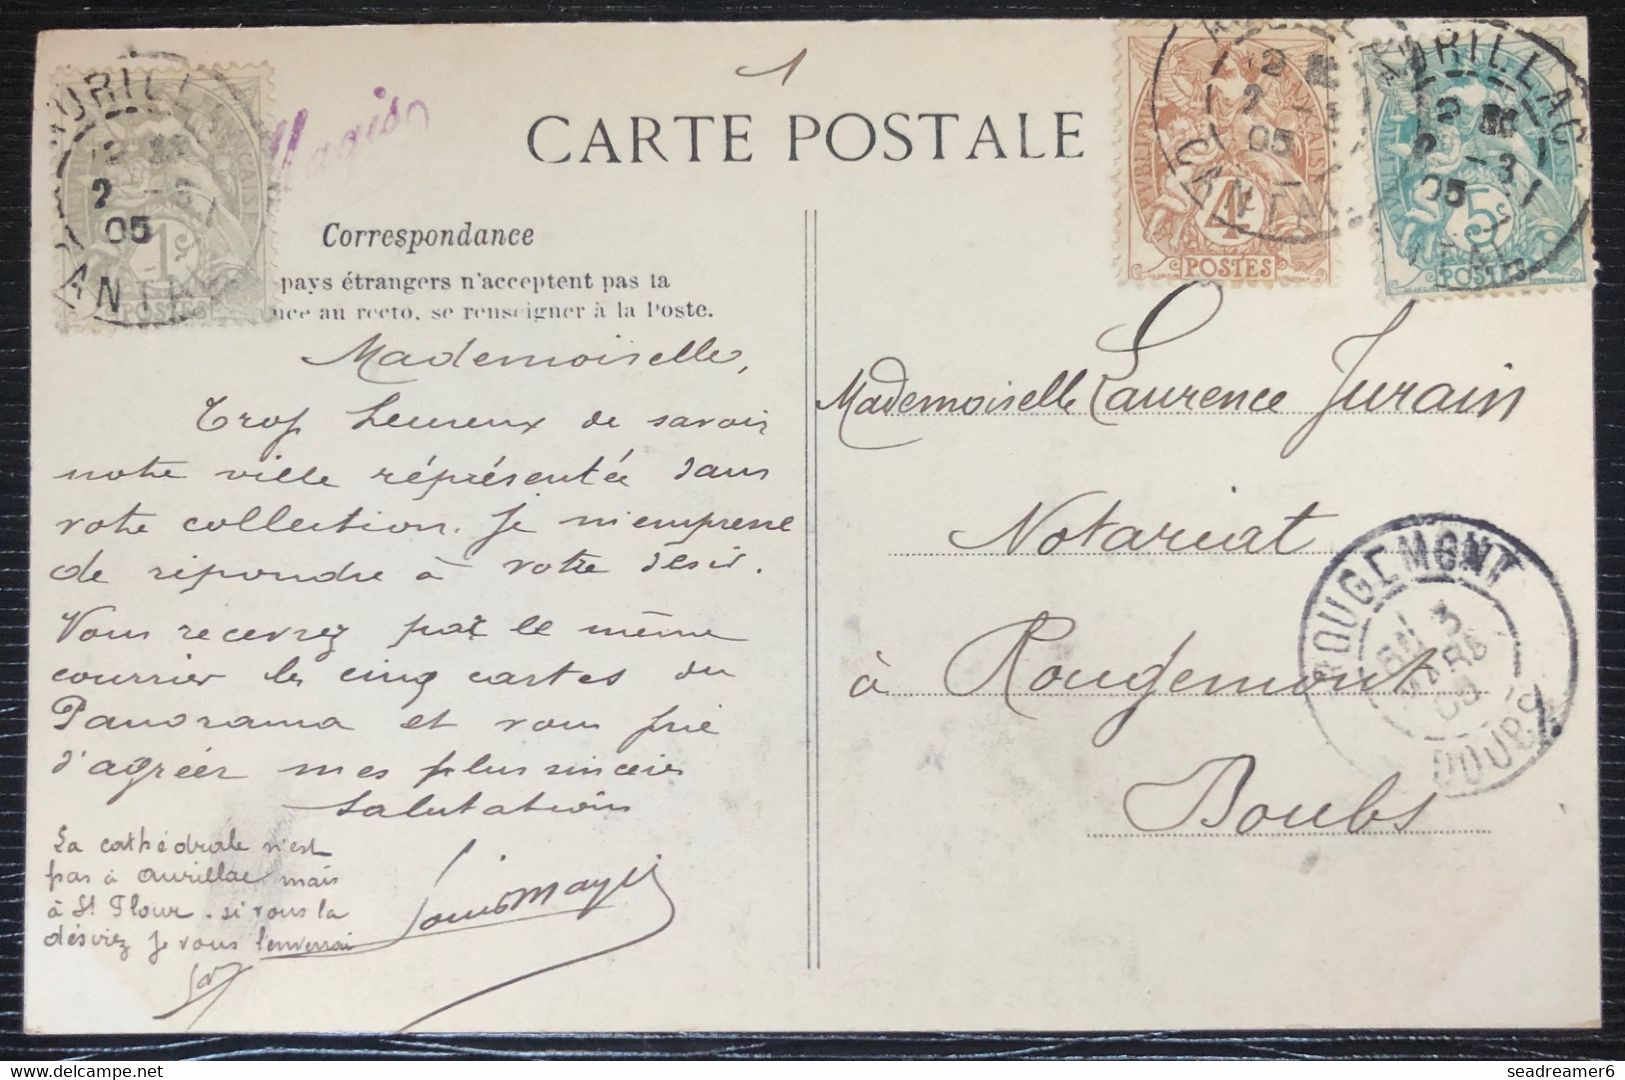 AURILLAC
2 -3
05
CANTAL
1c
POSTES
1
CARTE POSTALE
AURILLAC
12
2
05
CANTAL
4
POSTES
AURILLAC
2 -3
05
5c
POSTES
Correspondance
pays étrangers n'acceptent pas la
nce au recto, se renseigner à la Poste.
Mademoiselle,
Trop heureux de savoir
notre ville réprésentée dans
votre collection. Je m'empresse
de répondre à votre désir.
Vous recevrez par le même
courrier les cinq cartes du
Panorama et vous prie
d'agréer mes plus sincères
salutations
La cathédrale n'est
pas à Aurillac mais
à St Flour. si vous la
désirez je vous l'enverrai
Louis
Mademoiselle Laurence Jurain
Notariat
à Rougemont
Doubs
ROUGEMONT
3
MARS
05
DOUBS
seadreamer6 @ delcampe.net